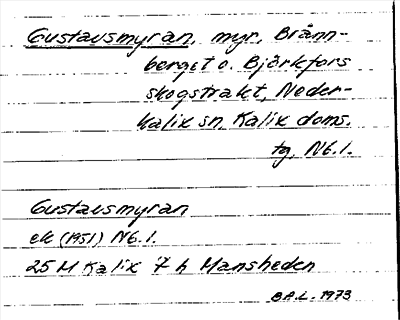 Gustavsmyran, myr, Bränn-
berget o. Björkfors
skogstrakt, Neder-
kalix sn, Kalix doms.
tg, Nb.l.
Gustavsmyran
ek (1951) Nb.l.
25 M Kalix 7 h Mansheden
B.A.L. 1973